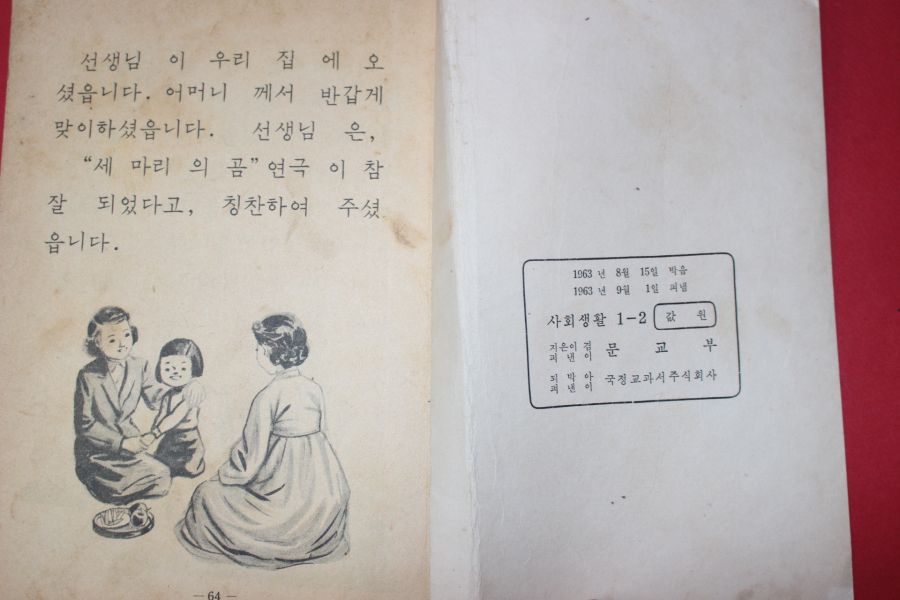 선생님 이 우리 집 에 오
셨읍니다. 어머니 께서 반갑게
맞이하셨읍니다. 선생님 은,
“세 마리 의 곰” 연극 이 참
잘 되었다고, 칭찬하여 주셨
읍니다.
— 64 —
1963 년 8월 15일 박음
1963 년 9월 1일 펴냄
사회생활 1-2 값 원
지은이 겸
펴낸이 문교부
되박아
펴낸이 국정교과서주식회사